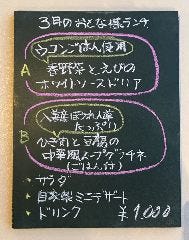 3月のおとな様ランチ
ウコンごはん使用
A 春野菜とえびの
ホワイトソースドリア
たっぷり
B ひき肉と豆腐の
中華風スープグラチネ
(ごはん付)
・サラダ
・自家製ミニデザート
・ドリンク ¥1,000